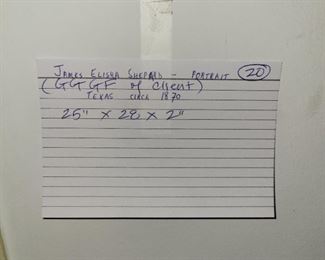 James Elisha Shepard - Portrait 20
(GGGF of Client)
Texas circa 1870
25" x 28 x 2"